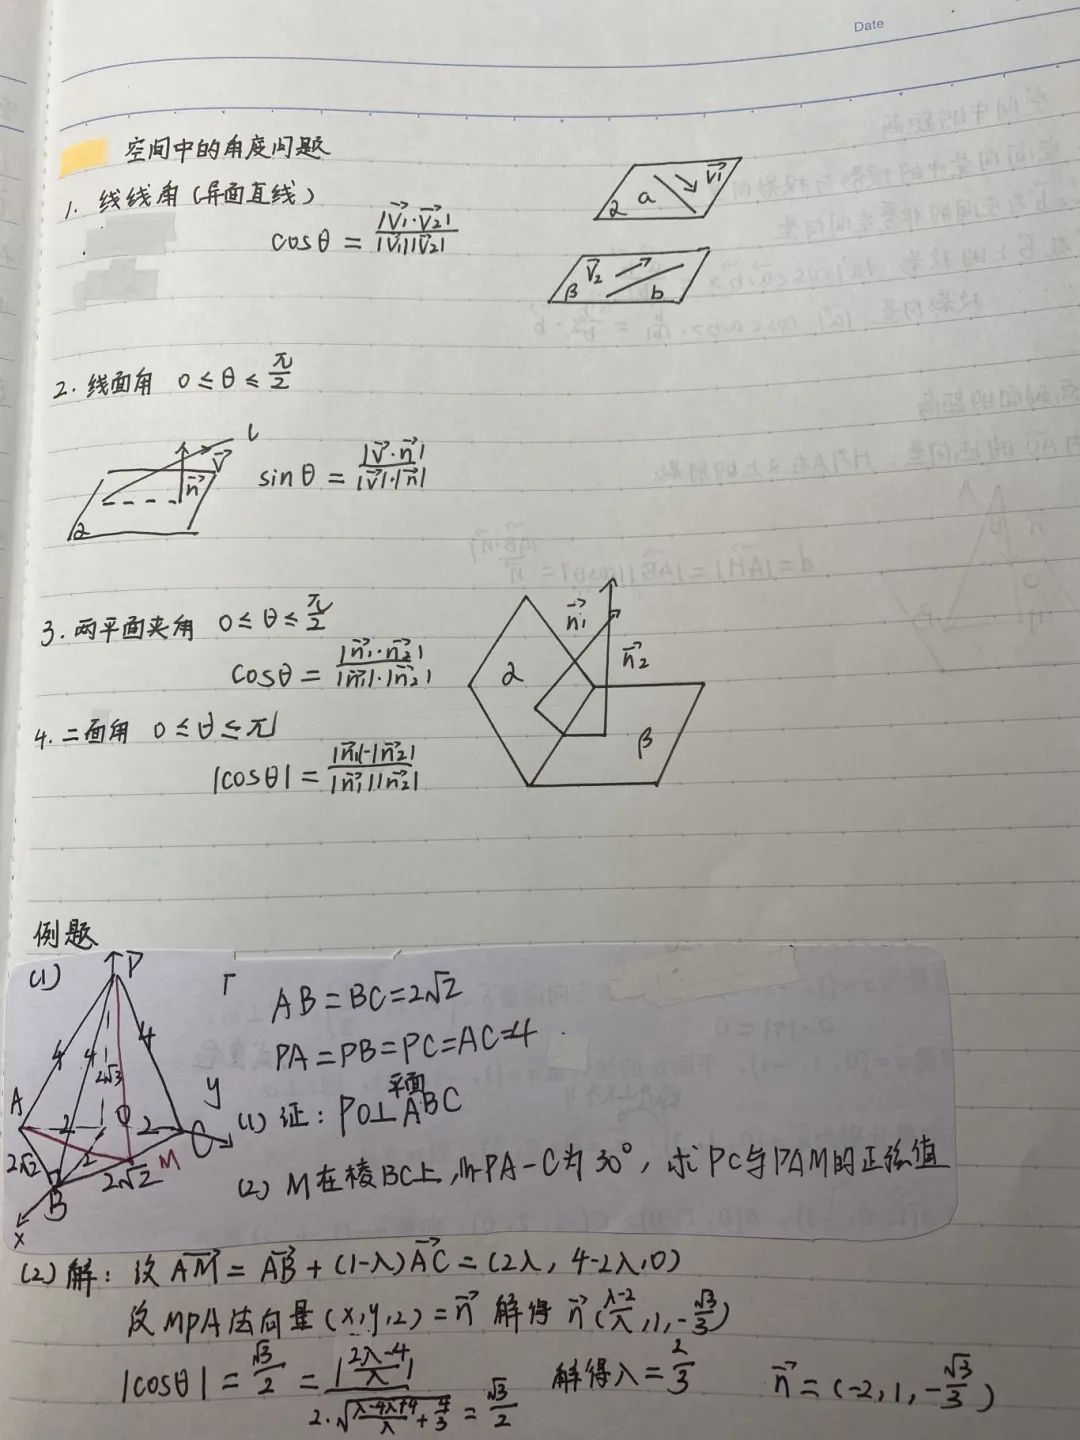 Date
空间中的角度问题
1. 线线角(异面直线)
cosθ = |v₁·v₂| / |v₁||v₂|
α a v₁
v₂ β b
2. 线面角 0 ≤ θ ≤ π/2
l v n α
sinθ = |v·n| / |v|·|n|
3. 两平面夹角 0 ≤ θ ≤ π/2
cosθ = |n₁·n₂| / |n₁|·|n₂|
4. 二面角 0 ≤ θ ≤ π
|cosθ| = |n₁|·|n₂| / |n₁||n₂|
α n₁ n₂ β
例题
(1)
P
4 4 4
2√3
A 2 O 2 C y
2√2 2 2√2 M
B
x
AB = BC = 2√2
PA = PB = PC = AC = 4
(1) 证: PO⊥平面ABC
(2) M在棱BC上, M-PA-C为30°, 求PC与PAM的正弦值
(2) 解: 设AM = AB + (1-λ)AC = (2λ, 4-2λ, 0)
设MPA法向量(x, y, z) = n 解得 n(λ-2/λ, 1, -√3/3)
|cosθ| = √3/2 = |2λ-4/λ| / 2·√(λ-4λ+4/λ + 4/3) = √3/2 解得λ = 2/3 n = (-2, 1, -√3/3)